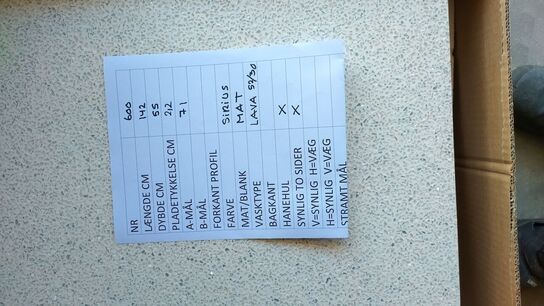 NR 600
LÆNGDE CM 142
DYBDE CM 55
PLADETYKKELSE CM 2,2
A-MÅL 71
B-MÅL
FORKANT PROFIL
FARVE SIRIUS
MAT/BLANK MAT
VASKTYPE LAVA
BAGKANT
HANEHUL X
SYNLIG TO SIDER X
V=SYNLIG H=VÆG
H=SYNLIG V=VÆG
STRAMT MÅL